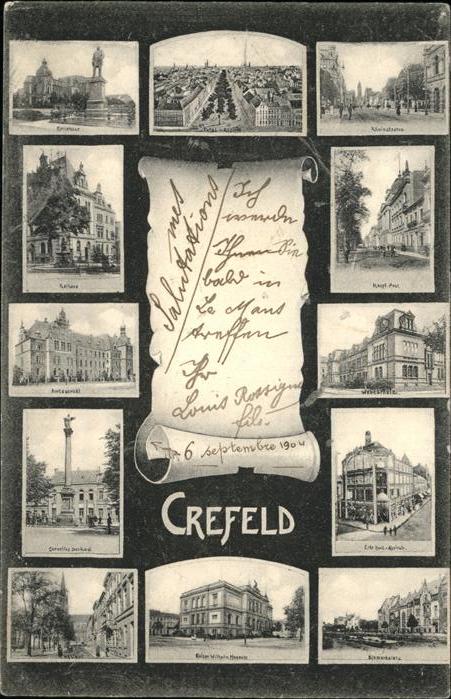 Total-Ansicht
Königstrasse
Rathaus
Haupt-Post
Amtsgericht
Webeschule
Cornelius Denkmal
Kaiser Wilhelm Museum
Bismarckplatz
mes
Salutations
Ich
werde
Ihnen Sie
bald in
Le Mans
treffen
Ihr
Louis Rossigno
fils.
6 septembre 1904
CREFELD